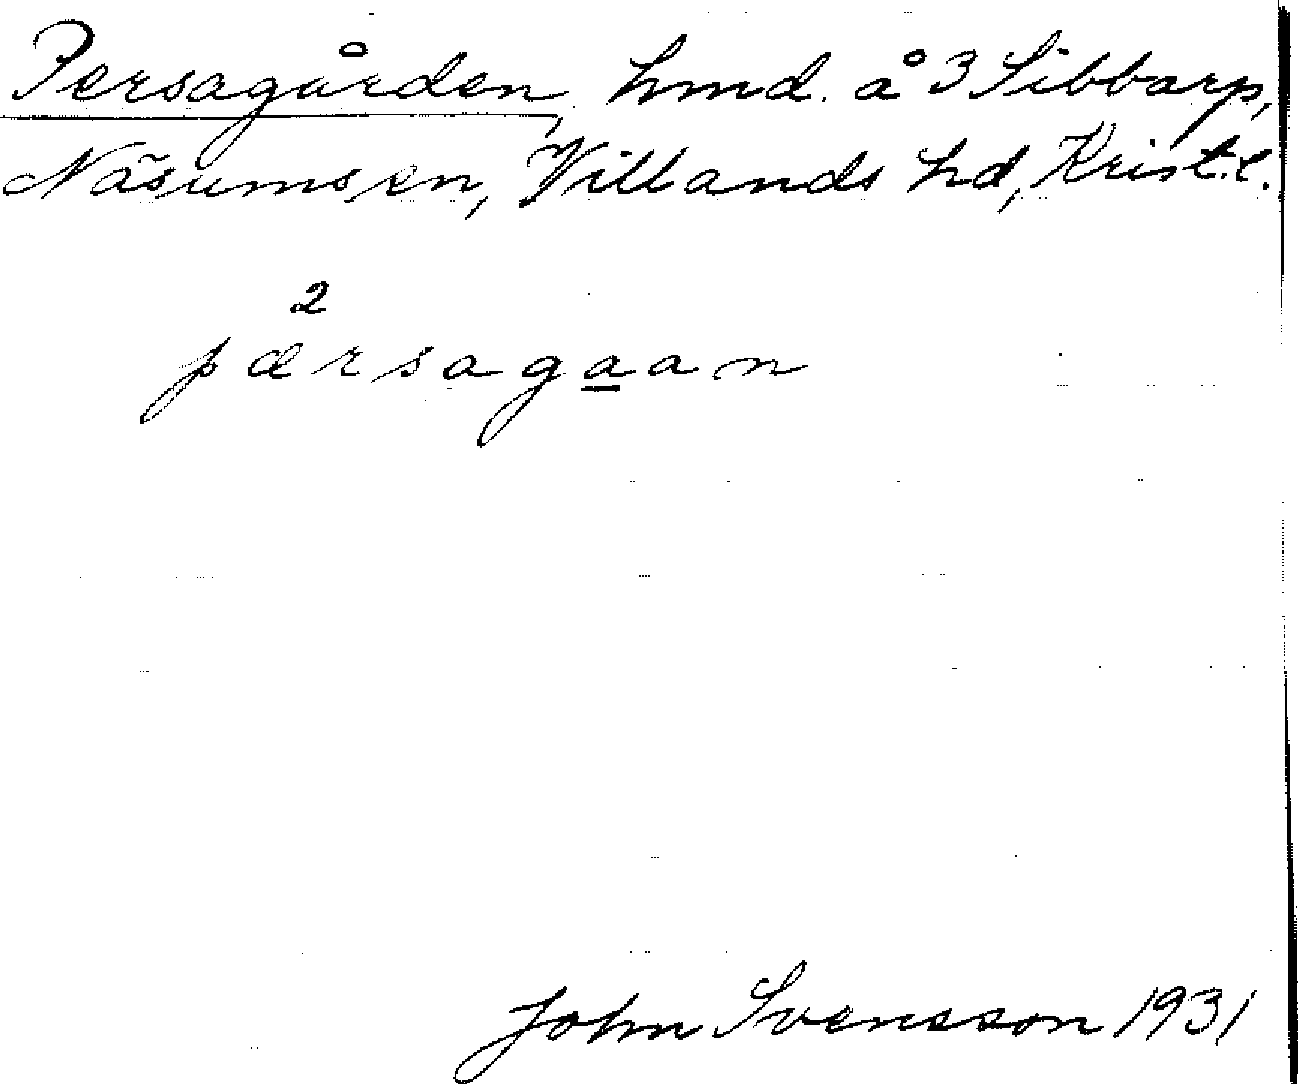 Persagården, hmd. å 3 Sibbarp,
Näsums sn, Villands hd, Krist.l.
2
pærsagaan
John Svensson 1931